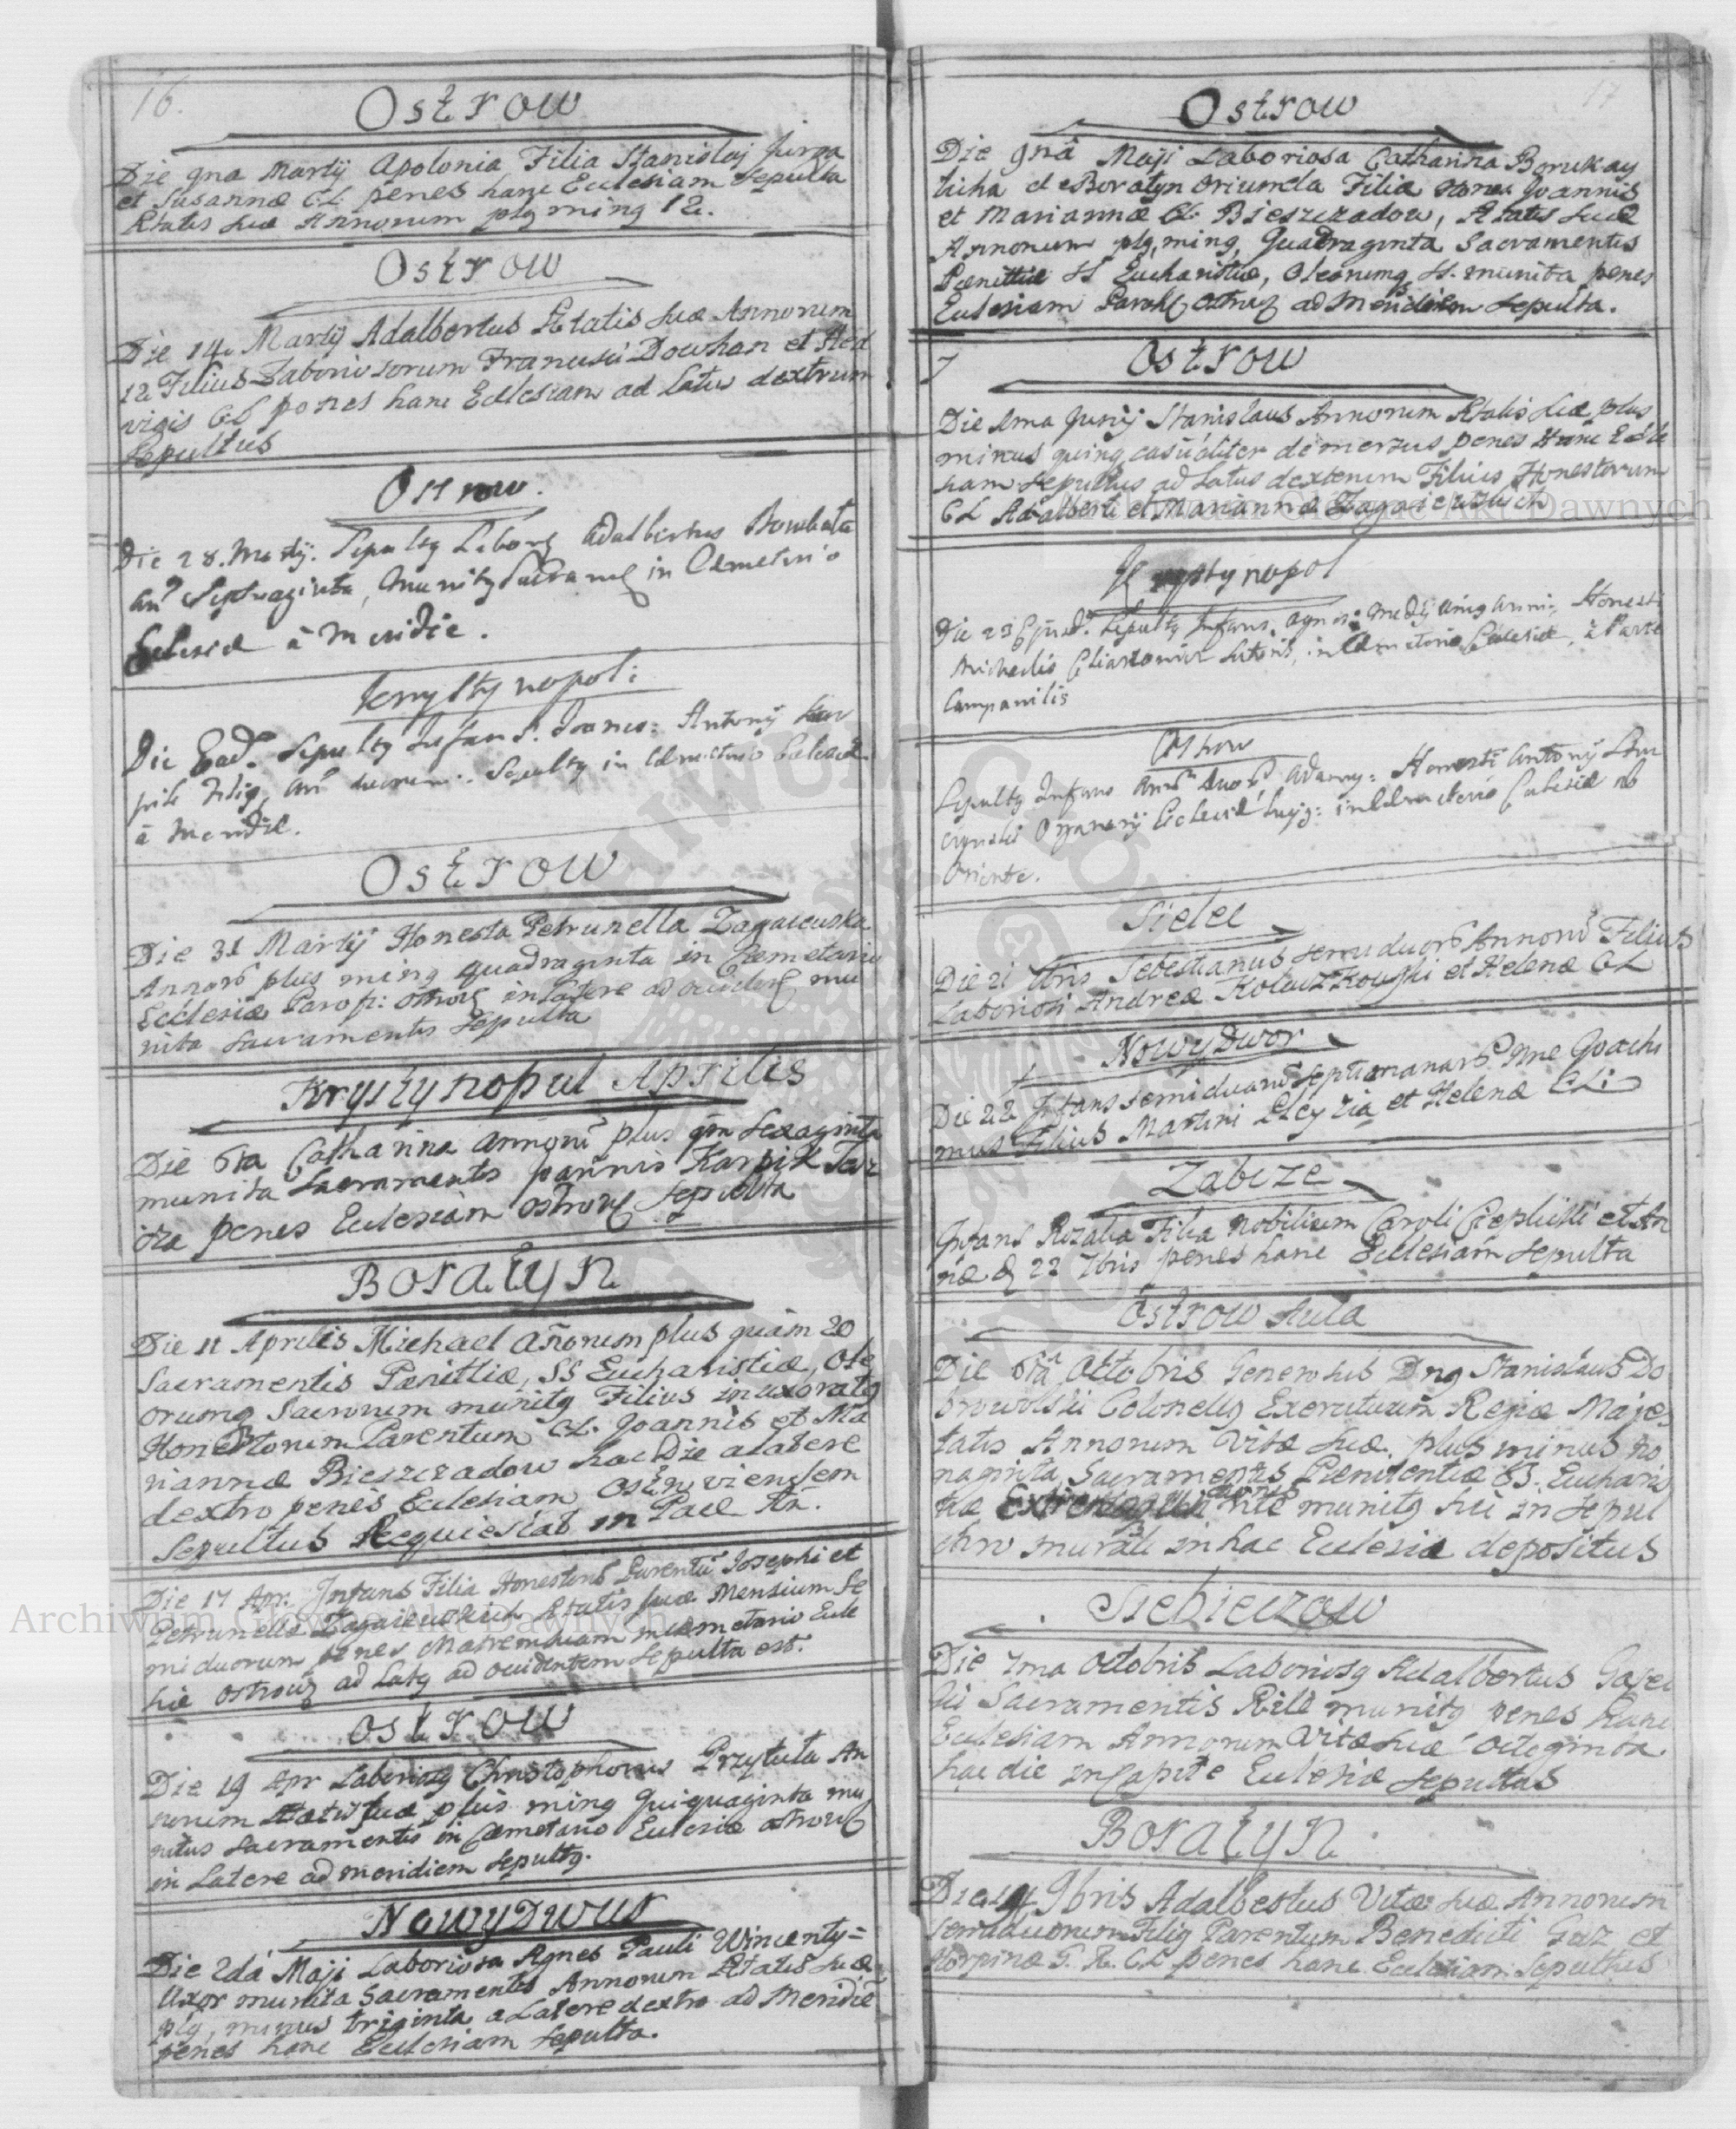 16.
Ostrow
Die 9na Martij Apolonia Filia Stanislaj Jurga
et Susannæ CL penes hanc Ecclesiam Sepulta
Ætatis suæ Annorum plg ming 12.
Ostrow
Die 14. Martij Adalbertus Ætatis suæ Annorum
12 Filius Laboriosorum Francisci Dowhan et Hed
vigis CL penes hanc Ecclesiam ad latus dextrum
Sepultus
Ostrow.
Die 28. Martij. Sepultg Laborg Adalbertus
an? Septuaginta, munitg in Cemeterio
Ecclesiæ à Meridie.
Krystynopoli
Die Ead. Sepultg Infans. Antonij
Filig, an? duorum. Sepultg in Cemeterio Ecclesiæ
à Meridie.
Ostrow
Die 31 Martij Honesta Petrunella Zagaiewska
Annorũ plus ming quadraginta in Cemeterio
Ecclesiæ Paroh: Ostrow in latere ad occident mu
nita Sacramentis Sepulta
Krystynopol Aprilis
Die 6ta Catharina annorũ plus qm Sexaginta
munita Sacramentis Joannis Karpik
penes Ecclesiam Ostrow Sepulta
Boratyn
Die 11 Aprilis Michael Añorum plus quam 20
Sacramentis Pænittiæ, SS Eucharistiæ, Ole
orumq Sacrorum munitg Filius inuxoratg
Honestorum Parentum CL. Joannis et Ma
riannæ Bieszczadow hac Die a latere
dextro penes Ecclesiam Ostroviensem
Sepultus Requiescat in Pace An.
Die 17 Apr. Infans Filia Honestorũ Parentũ Josephi et
Petrunellæ Zagaiewskich Ætatis suæ Mensium Se
mi duorum penes Matrem suam in cæmetario Eccle
siæ Ostrow ad Latg ad occidentem Sepulta est.
Ostrow
Die 19 Apr Laboriosg Christophorus Przytuła An
norum Ætatis suæ plus ming Quiquaginta mu
nitus Sacramentis in Cæmetario Ecclesiæ Ostrow
in Latere ad meridiem Sepultg.
Nowydwur
Die 2da Maji Laboriosa Agnes Pauli Wincenty=
Uxor munita Sacramentis Annorum Ætatis suæ
plg, minus triginta a Latere dextro ad Meridie
penes hanc Ecclesiam Sepulta.
17
Ostrow
Die 9na Maji Laboriosa Catharina
de Boratyn oriunda Filia Hones Joannis
et Mariannæ CL. Bieszczadow, Ætatis suæ
Annorum plg, ming, Quadraginta Sacramentis
Pænittiæ SS Eucharistiæ, Oleorumq SS. munita penes
Ecclesiam Paroh Ostrow ad Meridiem Sepulta.
Ostrow
Die Junij Stanislaus Annorum Ætatis suæ plus
minus quinq casualiter demersus penes Hanc Eccle
siam Sepultus ad Latus dexterum Filius Honestorum
CL Adalberti et Mariannæ Zagaiewskich
Krystynopol
Die 23 Ejusd. Sepultg Infans, Anni, Honesti
Michaelis in Cemeterio Ecclesiæ, à Parte
Campanilis
Ostrow
Sepultg Infans Annorũ duorũ, Adamg: Honesti Antonij
Organarij Ecclesiæ hujg: in Cemeterio Ecclesiæ ab
Oriente.
Sielec
Die 21 Sebestianus semiduorũ Annorũ Filius
Laboriosi Andreæ et Helenæ CL
NowyDwor
Die 22 Infans semi duarũ septimanarũ Nne Joachi
mus Filius Martini et Helenæ CL
Zabcze
Infans Rozalia Filia Nobilium Caroli Cieplinski et An
næ D 22 7bris penes hanc Ecclesiam Sepulta
Ostrow Aula
Die 6ta Octobris Generosus Dng Stanislaus Do
browolski Colonellg Exercituum Regiæ Majes
tatis Annorum Vitæ suæ plus minus no
naginta, Sacramentis Pænitentiæ SS. Eucharis
tiæ rite munitg hic in sepul
chro murali in hac Ecclesia depositus
Siebieczow
Die 7ma Octobris Laboriosg Adalbertus
Sacramentis Rite munitg penes hanc
Ecclesiam Annorum Vitæ suæ Octoginta
hac die in Capite Ecclesiæ Sepultus
Boratyn
Die 9bris Adalbestus Vitæ suæ Annorum
Semiduorum Filig Parentum Benedicti et
G. R. CL penes hanc Ecclesiam Sepultus
Archiwum Główne Akt Dawnych
Archiwum Główne Akt Dawnych